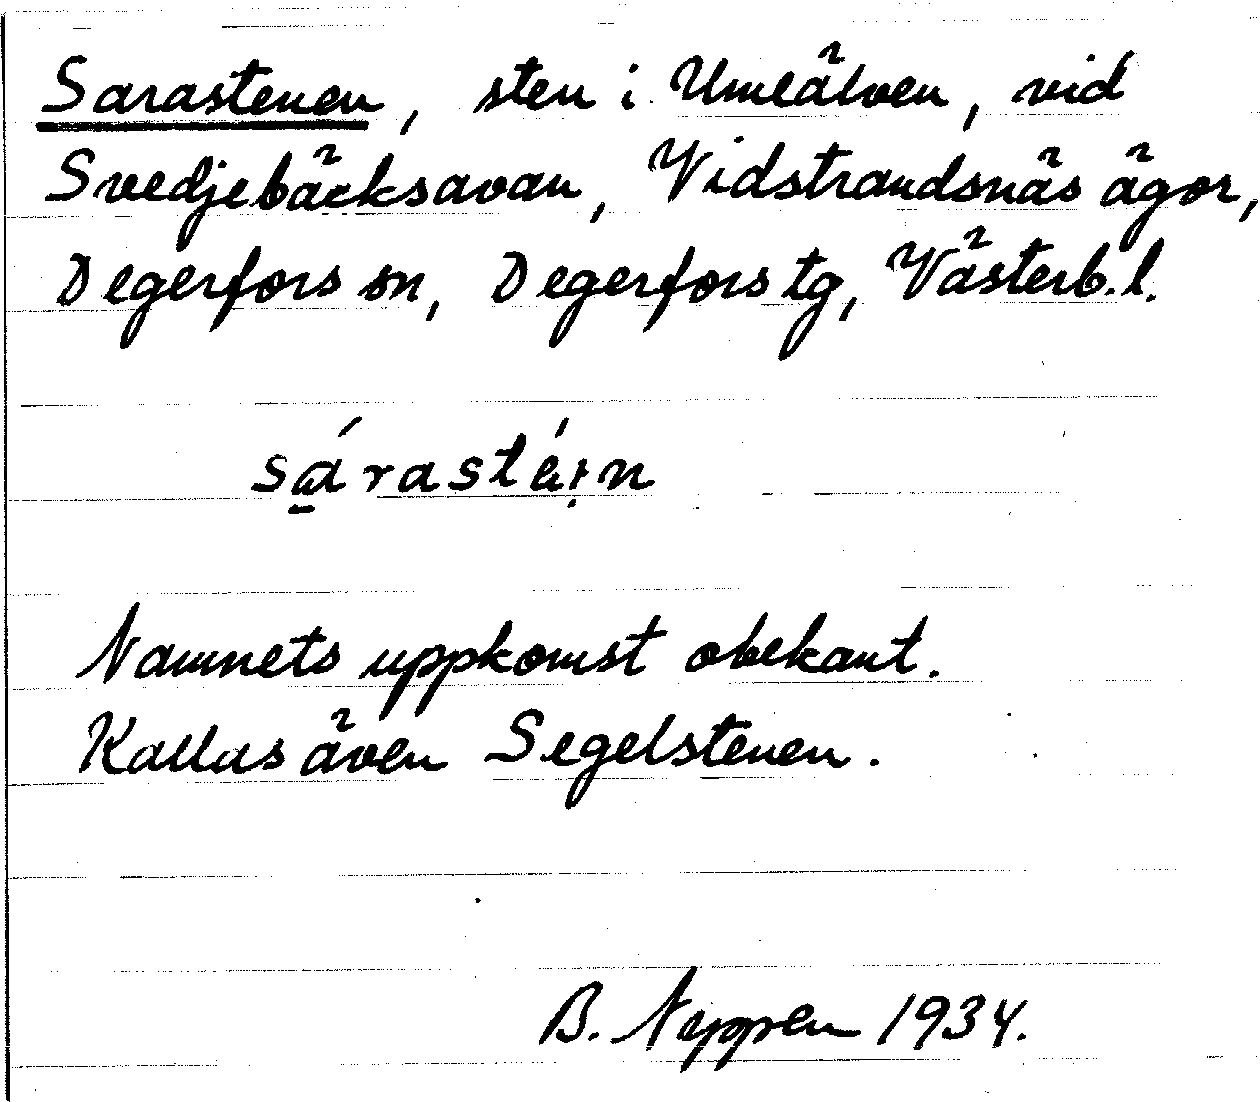 Sarastenen, sten i Umeälven, vid
Svedjebäcksavan, Vidstrandsnäs ägor,
Degerfors sn, Degerfors tg, Västerb. l.
sárastéi̩n
Namnets uppkomst obekant.
Kallas även Segelstenen.
B. Neppen 1934.